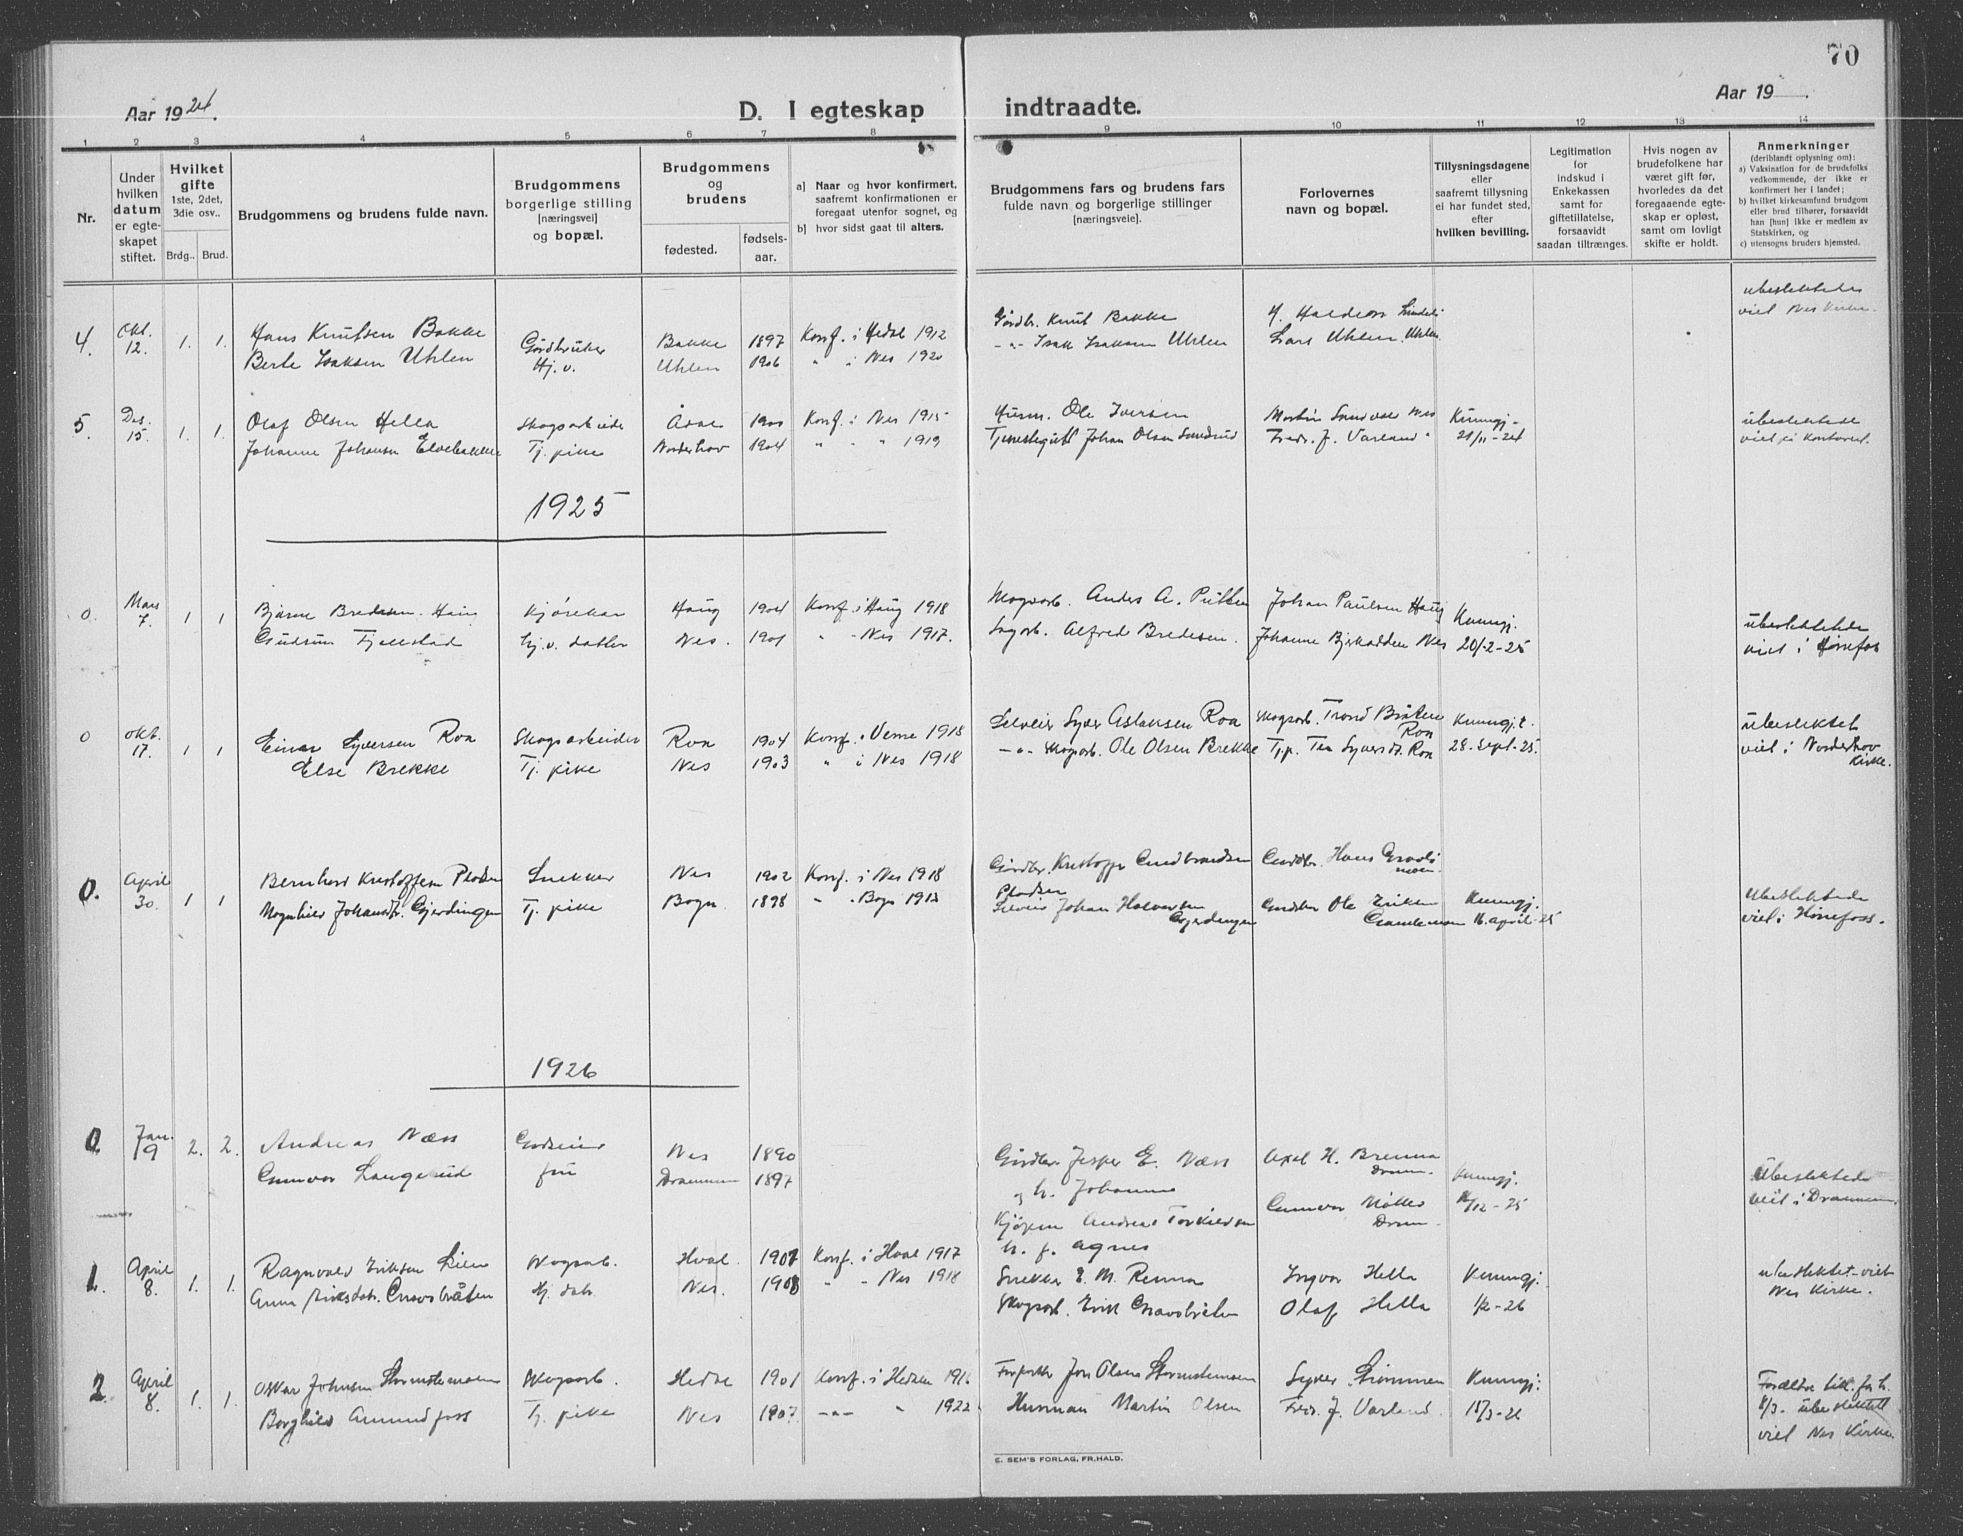 70
Aar 1924.
D. I egteskap indtraadte.
Aar 19 .
1 2 3 4 5 6 7 8 9 10 11 12 13 14
Nr.
Under hvilken datum er egteskapet stiftet.
Hvilket gifte 1ste, 2det, 3die osv..
Brdg.. Brud.
Brudgommens og brudens fulde navn.
Brudgommens borgerlige stilling [næringsvei] og bopæl.
Brudgommens og brudens
fødested.
fødselsaar.
a] Naar og hvor konfirmert, saafremt konfirmationen er foregaat utenfor sognet, og
b] hvor sidst gaat til alters.
Brudgommens fars og brudens fars fulde navn og borgerlige stillinger [næringsveie].
Forlovernes navn og bopæl.
Tillysningsdagene eller saafremt tillysning ei har fundet sted, efter hvilken bevilling.
Legitimation for indskud i Enkekassen samt for giftetillatelse, forsaavidt saadan tiltrænges.
Hvis nogen av brudefolkene har været gift før, hvorledes da det foregaaende egteskap er opløst, samt om lovligt skifte er holdt.
Anmerkninger
(deriblandt oplysning om):
a) Vaksination for de brudefolks vedkommende, der ikke er konfirmert her i landet;
b) hvilket kirkesamfund brudgom eller brud tilhører, forsaavidt han [hun] ikke er medlem av Statskirken, og
c) utensogns bruders hjemsted.
4. Okt. 12. 1. 1. Hans Knutsen Bakke Gårdbruker Bakke 1897 Konf. i Hedal 1912 Gårdbr. Knut Bakke
Berte Isaksen Uhlen Hj. v. Uhlen 1906 " i Nes 1920 -"- Isak Isaksen Uhlen Lars Uhlen, Uhlen
ubeslektede
viet Nes Kirke.
5. Des. 15. 1. 1. Olaf Olsen Hella Skogsarbeider 1900 Konf. i Nes 1915 Husm. Ole Iversen Kunngj.
Johanne Johansen Elvebakken Tj. pike Norderhov 1904 " " 1919 Johan Olsen Sundrud Fredr. J. Varland " 21/11-24
ubeslektede
viet på kontoret.
1925
0. Mars 7. 1 1 Bjarne Bredesen Haug 1904 Konf. i Haug 1918 Anders A. Putten Johan Paulsen Haug Kunngj.
Gudrun Fjellstad hj. v. datter Nes. 1901 " - Nes 1917. Alfred Bredesen. Johanne Nes 20/2-25
ubeslektede
viet i Hønefos
0 Okt. 17. 1 1 Einar Syversen Roa Skogsarbeider Roa 1904 Konf. i Veme 1918 Selveier Syver Aslaksen Roa Skogsarb. Trond Bråten Roa Kunngj.
Else Brekke Tj. pike Nes 1903 " i Nes 1918 -"- Skogsarb. Ole Olsen Brekke Tj.p. Tea Syversdt. Roa 28. Sept-25.
ubeslektet
viet i Norderhov Kirke.
0. April 30. 1 1 Bernhard Kristoffersen Pladsen Snekker Nes 1902 Konf. i Nes 1918 Gårdbr. Kristoffer Gudbrandsen Pladsen Gårdbr. Hans
Magnhild Johansdt. Gjerdingen Tj. pike Bagn. 1898 " . Bagn 1913 Johan Halvorsen Gjerdingen Gårdbr Ole Eriksen Kunngj. 16. april-25
ubeslektede
viet i Hønefoss.
1926
0 Jan. 9 2. 2. Andreas Næss Nes 1890 Gårdbr. Jesper E. Næss Axel H. Brenna Dram. Kunngj.
Gunvor Langerud fru Drammen 1897 og h. Johanne Gunvor Møller Dram. /12-25
Kjøpm. Andreas Torkildsen
h. f. Agnes
Ubeslektede
viet i Drammen.
1. April 8. 1. 1. Ragnvald Eriksen Lien Skogsarb. Hval. 1901 Konf. i Hval 1917 Snekker E. M. Renna Ingvar Hella Kunngj.
Anna Eriksdatr. Gravsbråten Hj. datr. Nes. 1903 " - Nes 1918 Skogsarb. Erik Gravsbråten Olaf Hella 1/2-26
ubeslektet-viet
Nes Kirke.
2. April 8. 1. 1. Oskar Johnsen Skogsarb. Hedal 1901 Konf. i Hedalen 1916 Jon Olsen Syver Strømmen Kunngj:
Borghild Amundfoss Tj. pike Nes 1907. -"- " 1922 Husman Martin Olsen Fredr. J. Varland. 15/3-26
ubeslektet
viet Nes Kirke.
E. SEM'S FORLAG, FR.HALD.